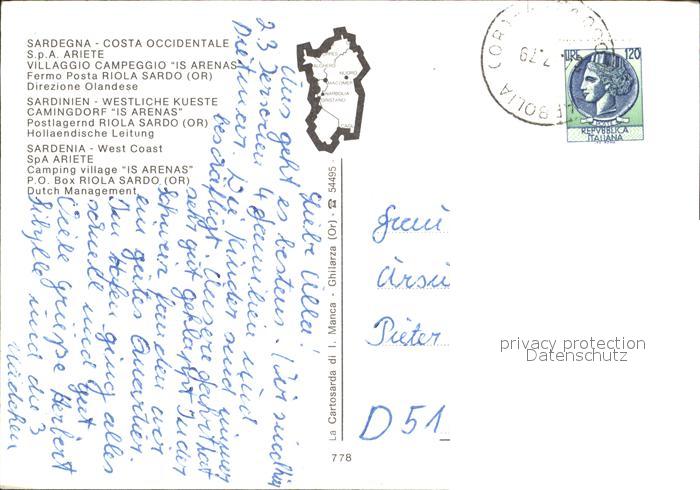 SARDEGNA - COSTA OCCIDENTALE
S.p.A. ARIETE
VILLAGGIO CAMPEGGIO "IS ARENAS"
Fermo Posta RIOLA SARDO (OR)
Direzione Olandese
SARDINIEN - WESTLICHE KUESTE
CAMINGDORF "IS ARENAS"
Postlagernd RIOLA SARDO (OR)
Hollaendische Leitung
SARDENIA - West Coast
SpA ARIETE
Camping village "IS ARENAS"
P.O. Box RIOLA SARDO (OR)
Dutch Management
Liebe Ulla!
Uns geht es bestens. Wir sind
23 Personen 4 Familien und
Dietmar. Die Kinder sind immer
beschäftigt. Unsere Fahrt hat
sehr gut geklappt. In der
Schweiz fanden wir
ein gutes Quartier.
Im Hafen ging alles
schnell und gut
Viele Grüße Herbert
Sibylle und die 3
Mädchen
La Cartosarda di I. Manca - Ghilarza (Or) - ☎ 54495 -
778
7.79
LIRE 120
REPVBBLICA
ITALIANA
Pieter
D 51
privacy protection
Datenschutz